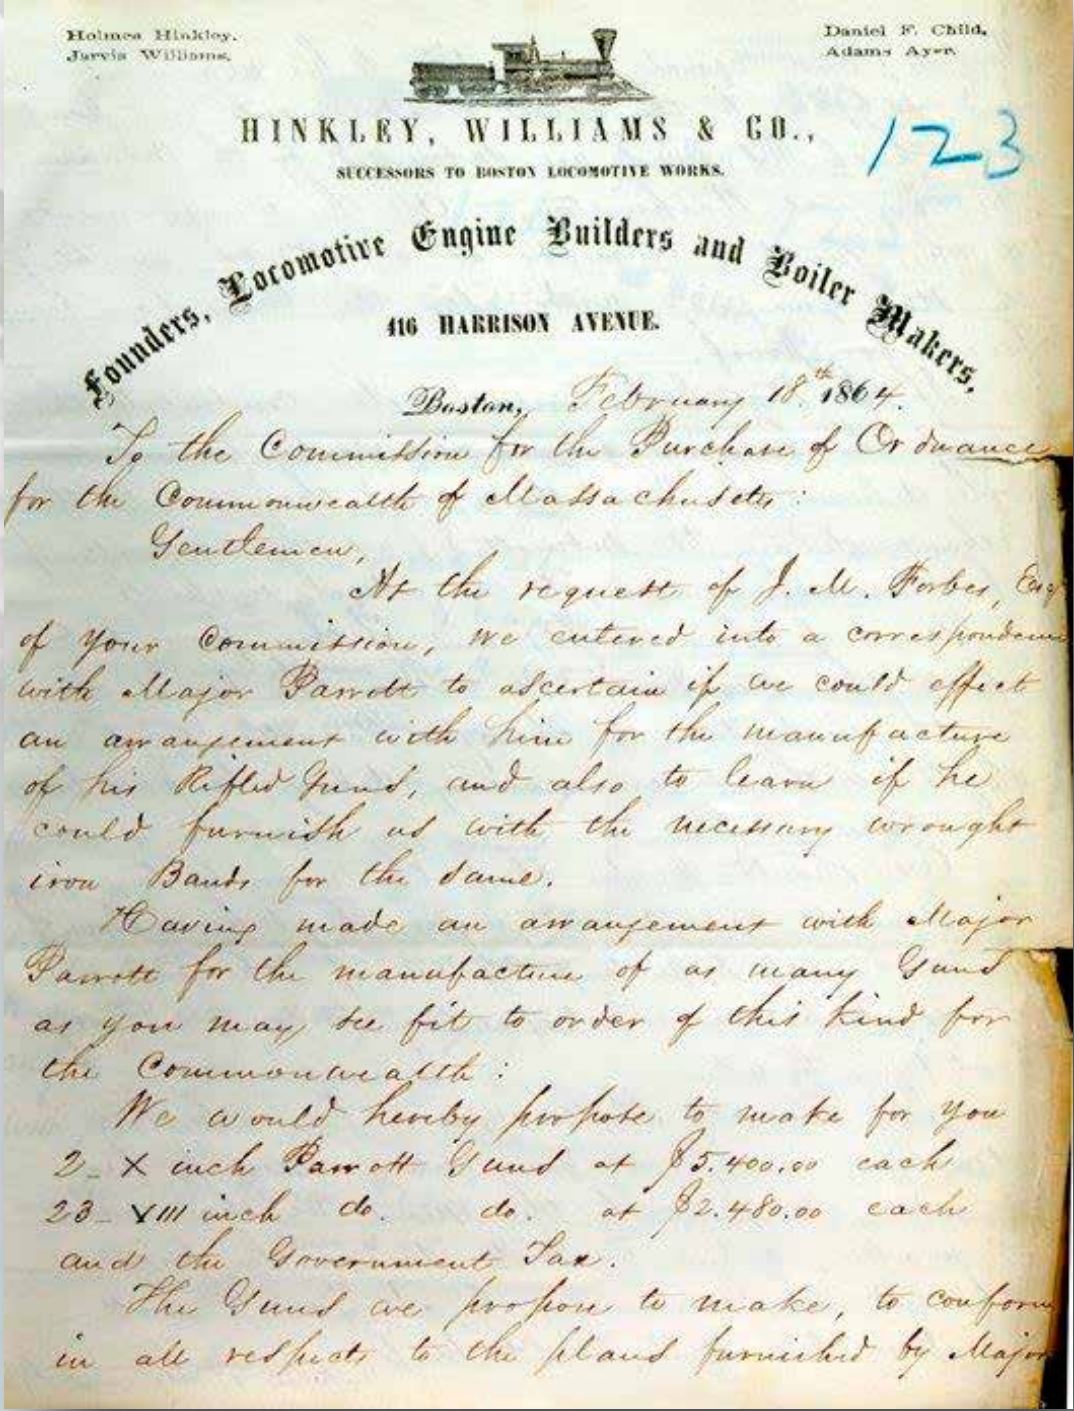 Holmes Hinkley.
Jarvis Williams.
Daniel F. Child.
Adams Ayer.
HINKLEY, WILLIAMS & CO.,
123
SUCCESSORS TO BOSTON LOCOMOTIVE WORKS.
Founders, Locomotive Engine Builders and Boiler Makers,
416 HARRISON AVENUE.
Boston, February 18th 1864.
To the Commission for the Purchase of Ordnance
for the Commonwealth of Massachusetts:
Gentlemen,
At the request of J. M. Forbes, Esq
of your Commission, we entered into a correspondence
with Major Parrott to ascertain if we could effect
an arrangement with him for the manufacture
of his Rifled Guns, and also to learn if he
could furnish us with the necessary wrought
iron Bands for the same.
Having made an arrangement with Major
Parrott for the manufacture of as many Guns
as you may see fit to order of this kind for
the Commonwealth:
We would hereby propose to make for you
2- X inch Parrott Guns at $5.400.00 each
23- VIII inch do. do. at $2.480.00 each
and the Government Tax.
The Guns we propose to make, to conform
in all respects to the plans furnished by Major